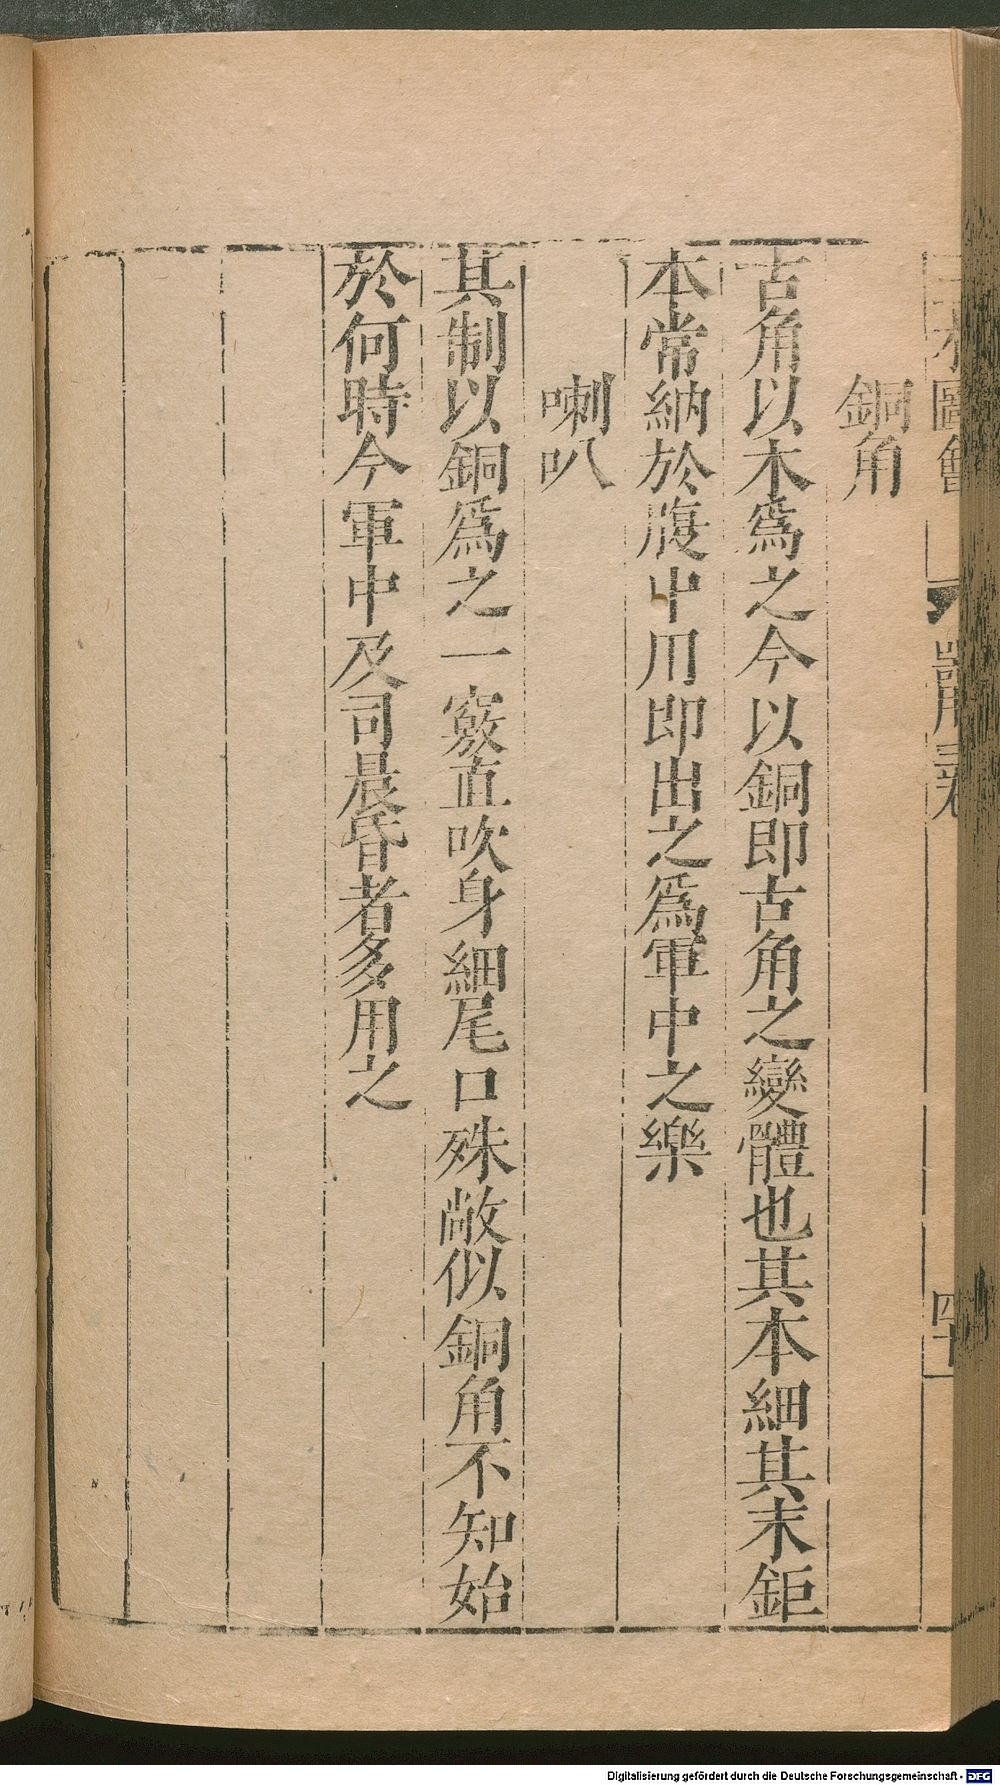 三才圖會
器用三卷
四十
銅角
古角以木爲之今以銅即古角之變體也其本細其末鉅
本常納於腹中用即出之爲軍中之樂
喇叭
其制以銅爲之一竅直吹身細尾口殊敞似銅角不知始
於何時今軍中及司晨昏者多用之
Digitalisierung gefördert durch die Deutsche Forschungsgemeinschaft - DFG